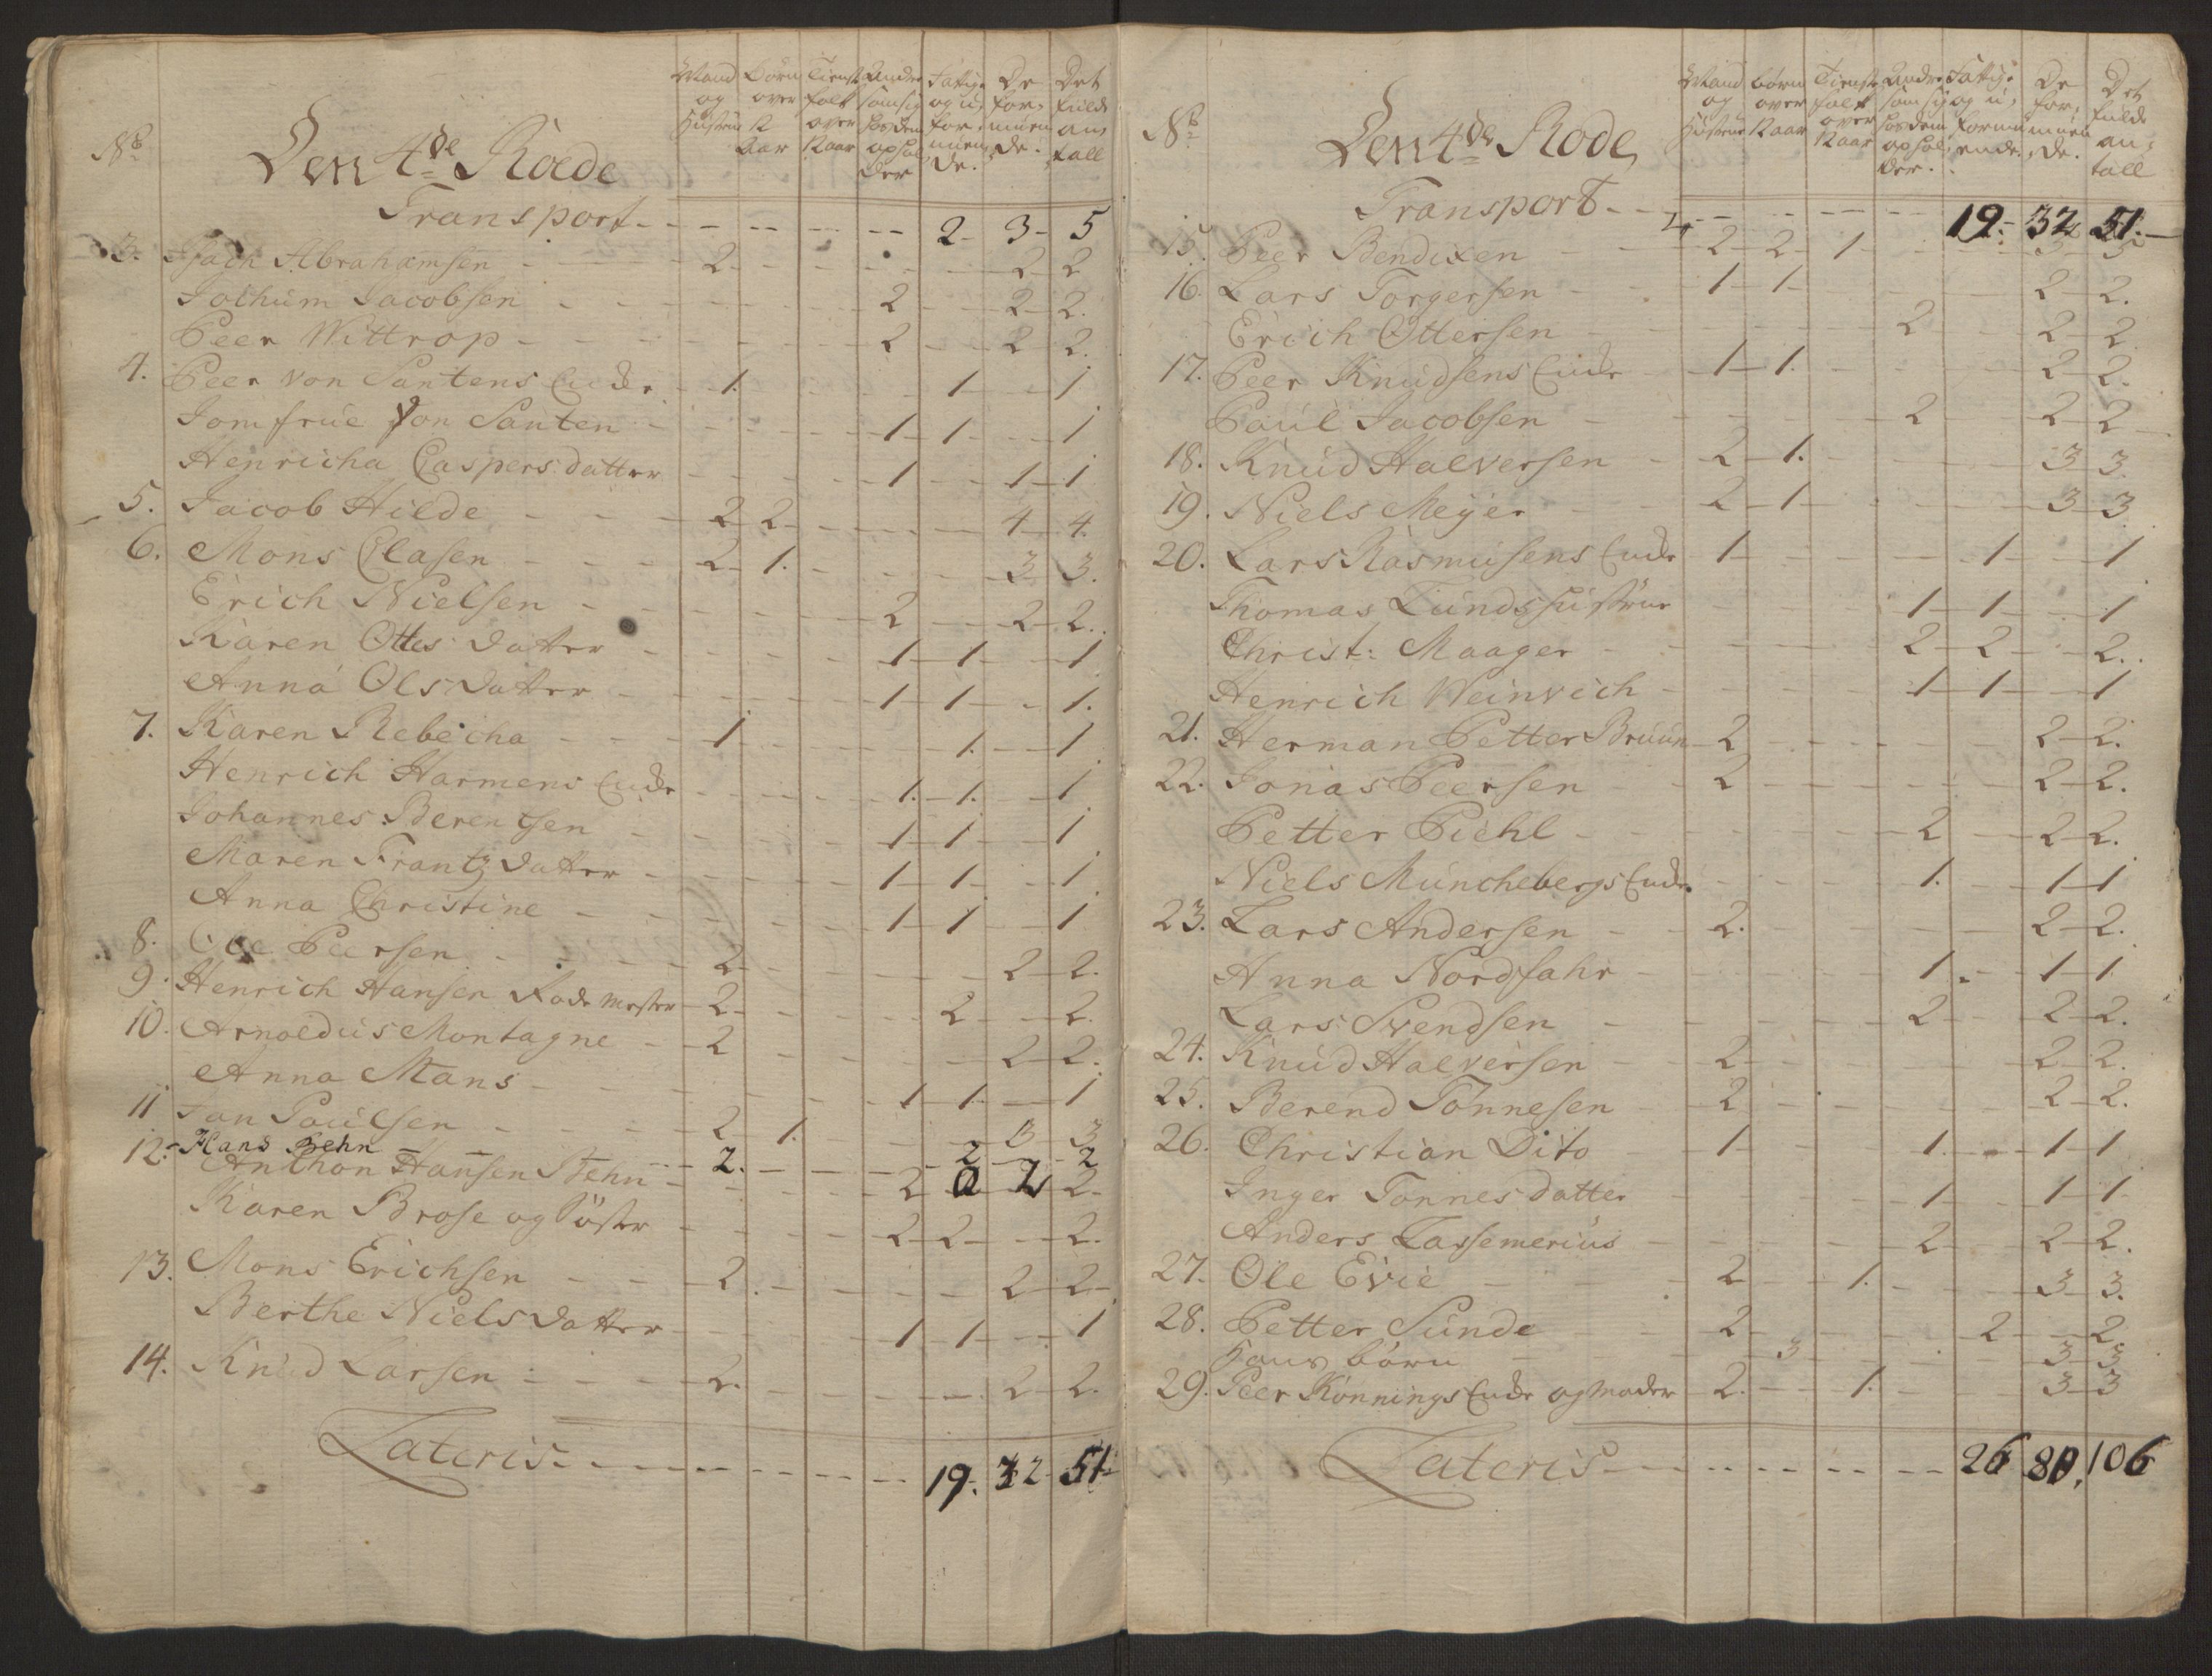 No
Den 4de Rode
Mand og Hustrue
Børn over 12 Aar
Tienistefolk over 12 Aar
Andre som sig hos dem opholder
Fattige og uformuende
De formuende
Det fulde antall
Transport 2 3 5
3. Isach Abrahamsen 2 2 2
Jochum Jacobsen 2 2 2.
Peer Wittrop 2 2 2.
4. Peer von Santens Encke 1. 1 1
Jomfrue von Santen 1 1 1
Henricha Caspersdatter 1 1 1
5. Jacob Hilde 2 2 4 4.
6. Mons Clasen 2 1. 3 3.
Erich Nielsen 2 2 2.
Karen Ottes datter 1 1 1
Anna Olsdatter 1 1 1.
7. Karen Rebeicha 1 1. 1
Henrich Harmens Encke 1. 1. 1
Johannes Berentsen 1 1 1
Maren Frantzdatter 1 1 1
Anna Christine 1 1 1
8. Ole Peersen 2 2 2.
9. Henrich Hansen Rodemester 2 2 2.
10. Arnoldus Montagne 2 2 2.
Anna Mans 1 1 1
11 Jan Poulsen 2 1. 3 3
12. Hans Behn 2. 2 2
Anthon Hansen Stehn 2 0 2 2
Karen Brose og Söster 2 2 2.
13. Mons Erichsen 2 2 2
Berthe Nielsdatter 1 1 1
14. Knud Larsen 2. 2 2.
Lateris 19. 32 51
No
Den 4de Rode
Mand og Hustrue
børn over 12 aar
Tieniste folk over 12 aar
Andre som sig hos dem opholder.
Fattige og uformuende.
De formuende.
Det fulde antall
Transport 19. 32 51.
15. Peer Bendixen 2 2 1
16. Lars Torgersen 1 1 2 2.
Erich Ottersen 2 2 2
17. Peer Knudsens Encke 1 1. 2 2.
Poul Jacobsen 2 2 2
18. Knud Halversen 2 1. 3 3.
19. Niels Meyer 2 1 3 3
20. Lars Rasmusens Encke 1 1 1
Thomas Lunds hustrue 1 1 1
Christ: Maager 2 2 2.
Henrich Weinrich 1 1 1
21. Herman Petter Bruun 2 2 2.
22. Jonas Peersen 2 2 2.
Petter Piehl 2 2 2.
Niels Munchebergs Encke 1. 1 1
23. Lars Andersen 2. 2 2.
Anna Nordfahr 1. 1 1
Lars Svendsen 2 2 2.
24. Knud Halversen 2 2 2.
25. Berend Tønnesen 2 2 2.
26. Christian Dito 1 1. 1 1
Inger Tonnesdatter 1 1 1
Anders Lassemerius 2 2 2.
27. Ole Evie 2 1. 3 3.
28. Petter Sunde 2 2 2
Hans børn 3 3 3
29. Peer Kønnings Encke og Moder 2. 1. 3 3
Lateris 26 80, 106